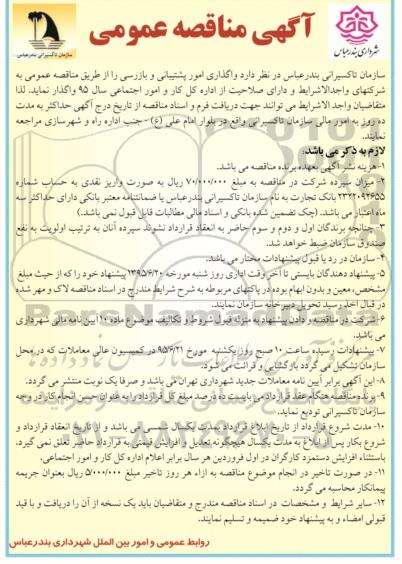 آگهی مناقصه عمومی
شهرداری بندرعباس
سازمان تاکسیرانی بندرعباس
سازمان تاکسیرانی بندرعباس در نظر دارد واگذاری امور پشتیبانی و بازرسی را از طریق مناقصه عمومی به
شرکتهای واجدالاشرایط و دارای صلاحیت از اداره کل کار و امور اجتماعی سال ۹۵ واگذار نماید. لذا
متقاضیان واجد الاشرایط می توانند جهت دریافت فرم و اسناد مناقصه از تاریخ درج آگهی حداکثر به مدت
ده روز به امور مالی سازمان تاکسیرانی واقع در بلوار امام علی (ع) - جنب اداره راه و شهرسازی مراجعه
نمایند.
لازم به ذکر می باشد:
۱-هزینه نشر آگهی بعهده برنده مناقصه می باشد.
۲- میزان سپرده شرکت در مناقصه به مبلغ ۷۰/۰۰۰/۰۰۰ ریال به صورت واریز نقدی به حساب شماره
۲۳۲۲۰۹۲۶۵۵ بانک تجارت به نام سازمان تاکسیرانی بندرعباس یا ضمانتنامه معتبر بانکی دارای حداکثر سه
ماه اعتبار می باشد. (چک تضمین شده بانکی و اسناد مالی مطالبات قابل قبول نمی باشد.)
۳- چنانچه برندگان اول و دوم و سوم حاضر به انعقاد قرارداد نشوند سپرده آنان به ترتیب اولویت به نفع
صندوق سازمان ضبط خواهد شد.
۴- سازمان در رد یا قبول پیشنهادات مختار می باشد.
۵- پیشنهاد دهندگان بایستی تا آخر وقت اداری روز شنبه مورخه ۱۳۹۵/۶/۲۰ پیشنهاد خود را که از حیث مبلغ
مشخص، معین و بدون ابهام بوده در پاکتهای مربوطه به شرح شرایط مندرج در اسناد مناقصه لاک و مهر شده
در قبال اخذ رسید تحویل دبیرخانه سازمان نمایند.
۶-شرکت در مناقصه و دادن پیشنهاد به منزله قبول شروط و تکالیف موضوع ماده ۱۰ آیین نامه مالی شهرداری
می باشد.
۷- پیشنهادات رسیده ساعت ۱۰ صبح روز یکشنبه مورخ ۹۵/۶/۲۱ در کمیسیون عالی معاملات که در محل
سازمان تشکیل می گردد بازگشایی و قرائت می شود.
۸- این آگهی برابر آیین نامه معاملات جدید شهرداری تهران می باشد و صرفا یک نوبت منتشر می گردد.
۹- برنده مناقصه هنگام عقد قرارداد می بایست ده درصد مبلغ کل قرارداد را به عنوان حسن انجام کار در وجه
سازمان تاکسیرانی تودیع نماید.
۱۰- مدت شروع قرارداد از تاریخ ابلاغ قرارداد بمدت یکسال شمسی می باشد و از تاریخ انعقاد قرارداد و
شروع بکار پس از ابلاغ به مدت یکسال هیچگونه تعدیل و افزایش قیمتی به قرارداد حاضر تعلق نمی گیرد.
باستثناء افزایش دستمزد کارگران در اول فروردین هر سال برابر اعلام اداره کل کار و امور اجتماعی.
۱۱- در صورت تاخیر در انجام موضوع مناقصه به ازاء هر روز تاخیر مبلغ ۵/۰۰۰/۰۰۰ ریال بعنوان جریمه
پیمانکار محاسبه می گردد.
۱۲- سایر شرایط و مشخصات در اسناد مناقصه مندرج و متقاضیان باید یک نسخه از آن را دریافت و با قید
قبولی امضاء و به پیشنهاد خود ضمیمه و تسلیم نمایند.
روابط عمومی و امور بین الملل شهرداری بندرعباس